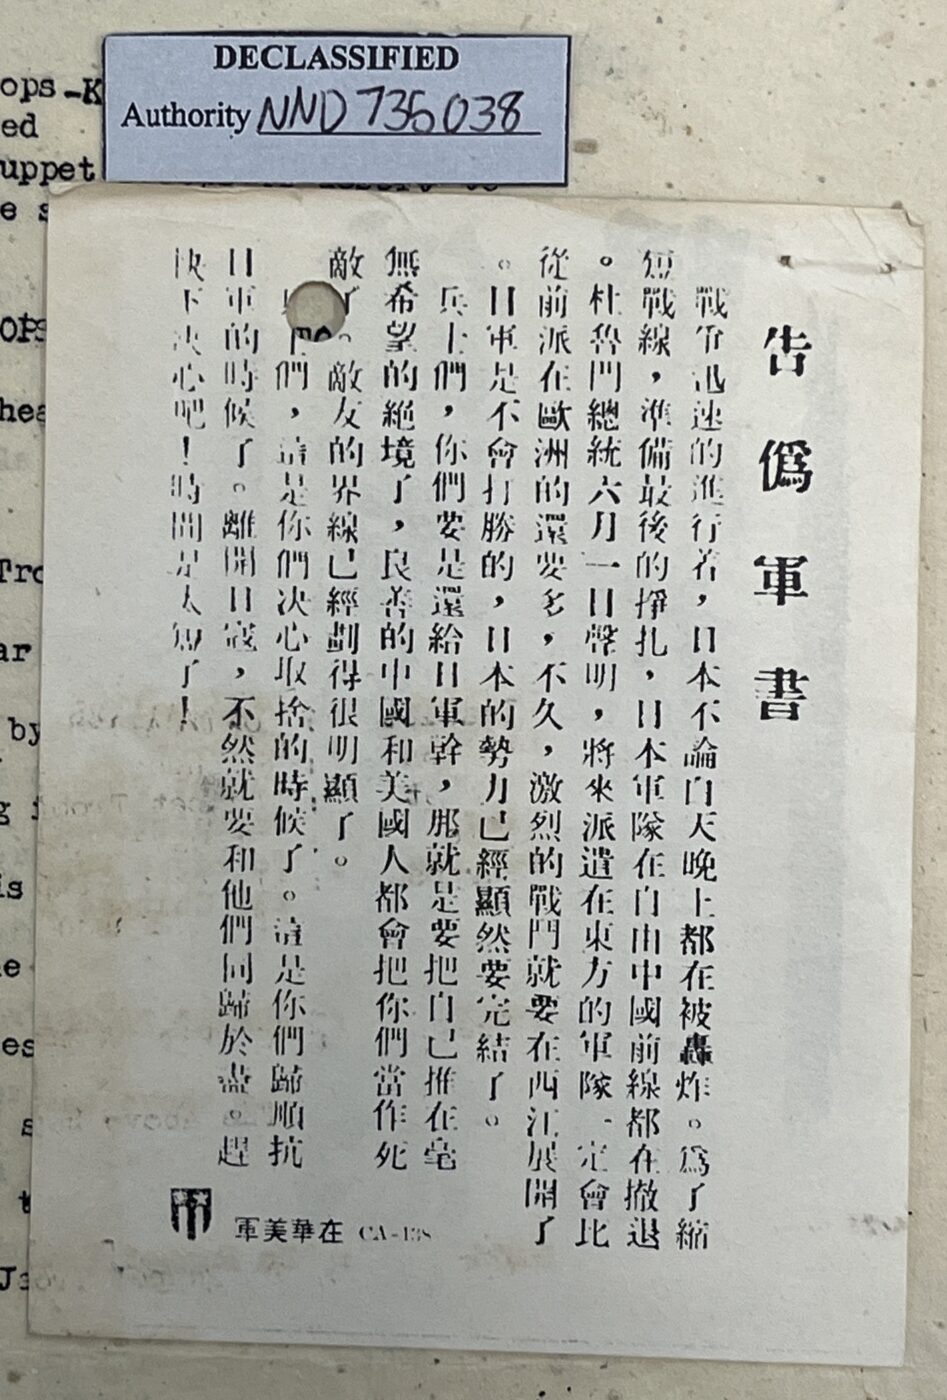 ops-K
ed
uppet
e s
DECLASSIFIED
Authority NND 735038
告僞軍書
戰争迅速的進行着，日本不論白天晚上都在被轟炸。爲了縮
短戰線，準備最後的掙扎，日本軍隊在自由中國前線都在撤退
。杜魯門總統六月一日聲明，將來派遣在東方的軍隊一定會比
從前派在歐洲的還要多，不久，激烈的戰鬥就要在西江展開了
。日軍是不會打勝的，日本的勢力已經顯然要完結了。
兵士們，你們要是還給日軍幹，那就是要把自己推在毫
無希望的絕境了，良善的中國和美國人都會把你們當作死
敵了。敵友的界線已經劃得很明顯了。
們，這是你們決心取捨的時候了。這是你們歸順抗
日軍的時候了。離開日寇，不然就要和他們同歸於盡。趕
快下決心吧！時間是太短了！
軍美華在 CA-138
OPS
hea
Tro
ar
by
g
is
e
es
s
t